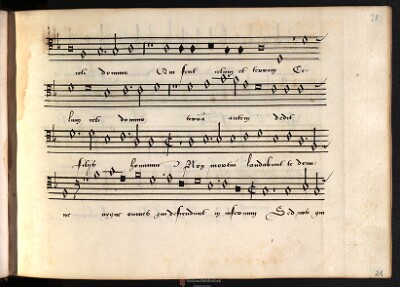 celi domino Qui fecit celum et terram Ce
lum celi domino terram autem dedit
filijs hominum Non mortui laudabunt te domi
ne neque omnes qui descendunt in infernum Sed nos qui